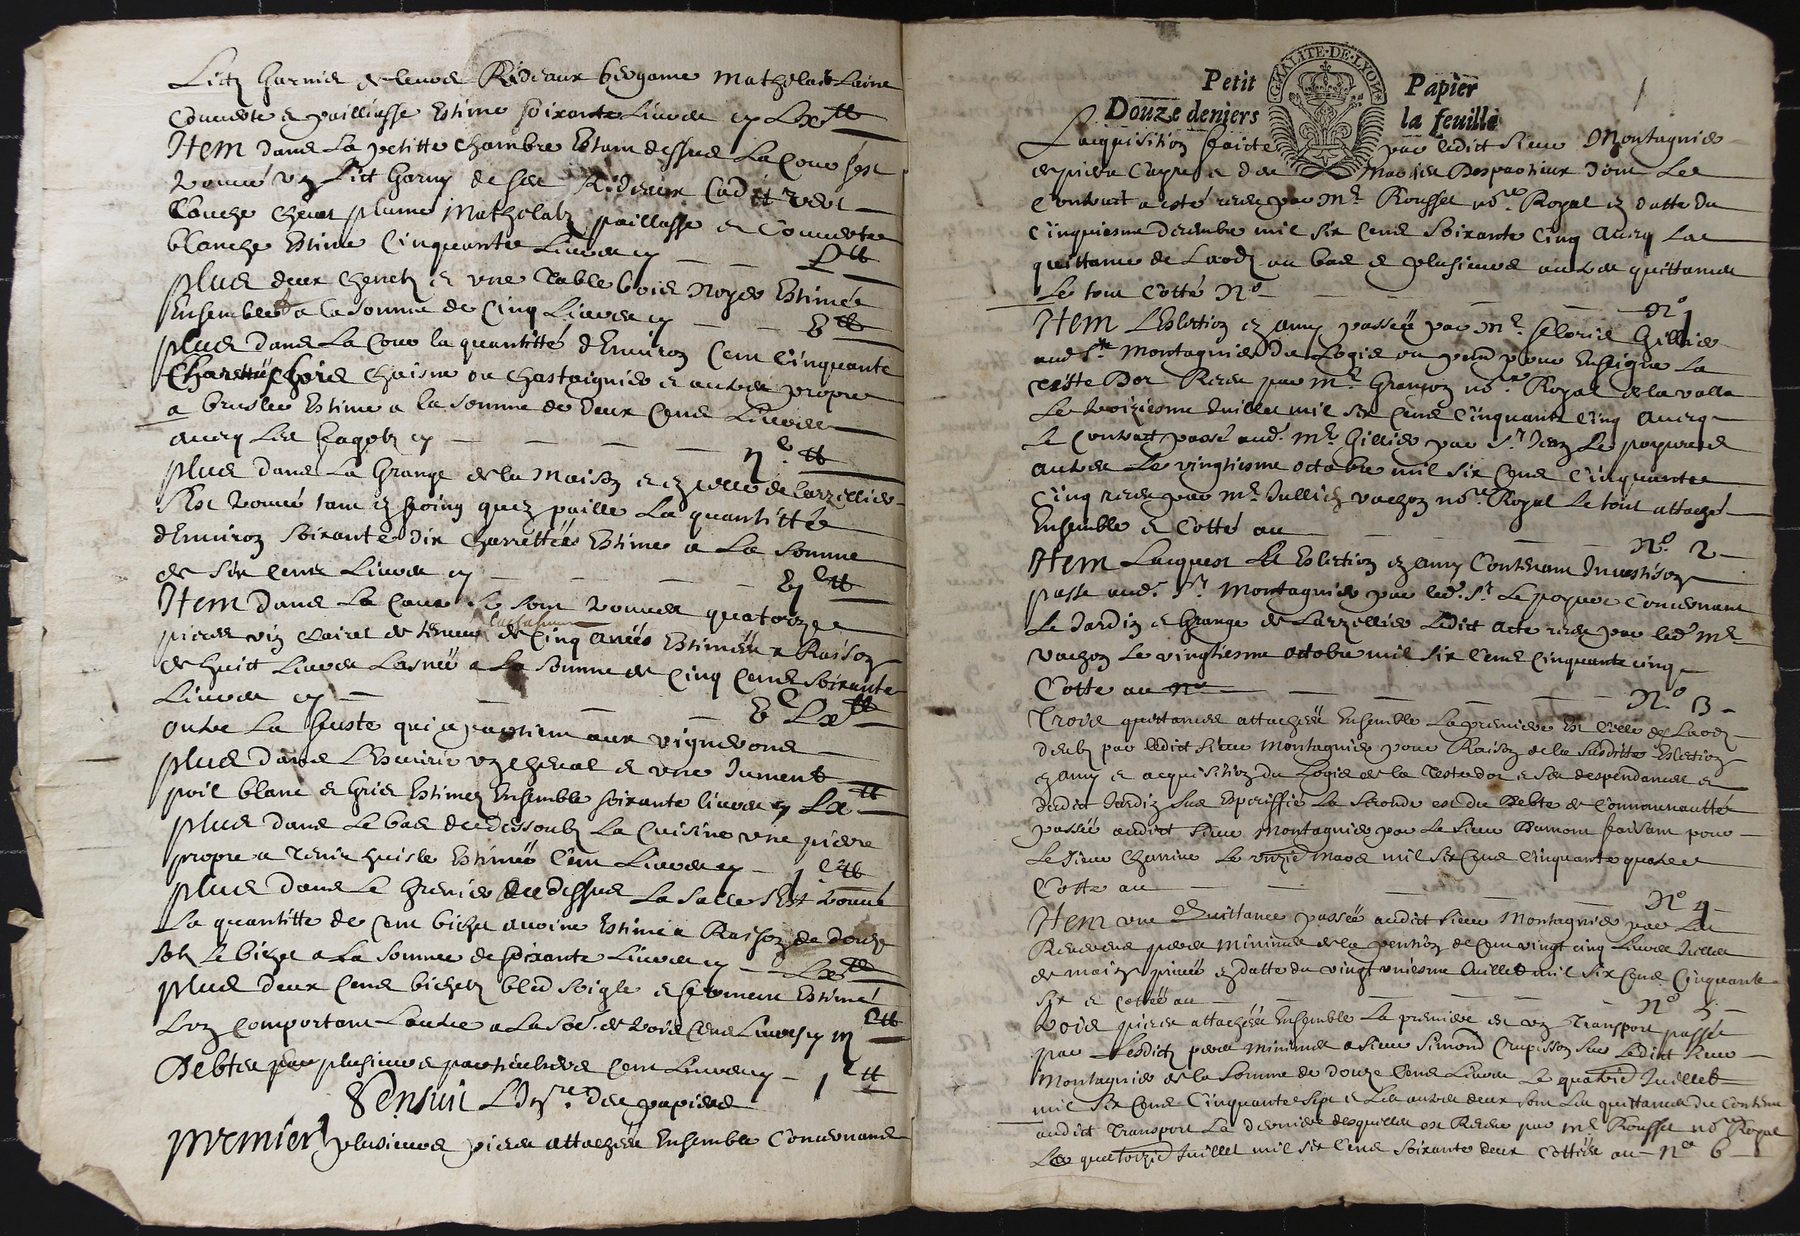 Lict garnis de leurs Rideaux bergame Mathelas Laine
Couverte et pailliasse Estimé soixante Livres cy Lx tt
Item dans La petitte chambre Estant dessus La Cour sest
trouvé un Lict garny de ses Rideaux Cadit vert
Couche chevet plume Mathelatz paillasse et Couverte
blanche Estimé Cinquante Livres cy L tt
plus deux chenetz et une Table bois noyer Estimée
Ensemble a la somme de Cinq Livres cy V tt
plus dans La Cour la quantitté d'Environ Cent Cinquante
bois chaisne ou chastaignier et autres propre
a brusler Estimé a la somme de deux Cens Livres
avecq Les fagotz cy ijc tt
plus dans La Grange de la Maison et en celle de Larzellier
sest trouvé tant en foing qu'en paille La quantitté
d'Environ soixante dix charrettées Estimé a La somme
de six Cens Livres cy vjc tt
Item dans La Cave se sont trouvés quatorze
pieces vin clairet de teneur de Cinq anées Estimées a Raison
de huict Livres Lasnée a La somme de Cinq Cens soixante
Livres cy Vc Lx tt
outre La fuste qui apartient aux vignerons
plus dans L'Escuirie un cheval et une Jument
poil blanc et gris Estimez Ensemble soixante livres cy Lx tt
plus dans Le bas du dessoubz La Cuisine une pierre
propre a tenir huisle Estimée Cent Livres cy jc tt
plus dans Le grenier au dessus La salle sest trouvé
La quantitté de cent bichet avoine Estimé a Raison de douze
solz Le bichet a La somme de soixante Livres cy Lx tt
plus deux Cens bichetz bled soigle et froment Estimé
Lun comportant Lautre a La so.e de trois Cens Livres cy iijc tt
Debtes par plusieurs particuliers Cent Livres cy jc tt
Sensuit L'Inv.re des papiers
premier plusieurs pieces attachées Ensemble Concernans
Petit Papier
Douze deniers la feuille
GNALITE·DE·LYON
L'acquisition faicte par ledict sieur Montagnier
de pierre et des Mariés Desparttieux dont Le
Contract a esté receu par Mr Rousset no.re Royal en datte du
Cinquiesme decembre mil six Cens Soixante Cinq avecq La
quittance de Laodz au bas et plusieurs autres quittances
Le tout Cotté No
No 1
Item L'Eslection en amy passée par Mr Gillier
aud. Sr Montagnier du Logis ou pend pour Enseigne La
teste Dor Receu par Mr Granjon no.re Royal de la valla
Le troiziesme Juillet mil six Cens Cinquante Cinq avecq
Le Contract passé aud. Mr Gillier par Sr Jean Le
autres Le vingtiesme octobre mil six Cens Cinquante
Cinq receu par Mr Jullien vachon no.re Royal Le tout attaché
Ensemble et Cotté au No 2
Item Lacquest et Eslection en amy Contenant Investison
passé aud. Sr Montagnier par led. Sr Concernant
Le Jardin et Grange de Larzellier Ledict acte receu par led. Mr
vachon Le vingtiesme octobre mil six Cens Cinquante cinq
Cotte au No 3
Trois quittances attachées Ensemble La premiere est Celle de Laodz
deubz par ledict sieur Montagnier pour Raison de la susditte Eslection
en amy et acquisition du Logis de la Teste dor et ses despendances et
dudict Jardin sus especiffié La seconde est du debte de Communautté
passée audict sieur Montagnier par Le sieur faisant pour
Le sieur Le Mars mil six Cens Cinquante quatre
Cotte au No 4
Item une Quittance passée audict sieur Montagnier par Les
Reverens peres Minimes de la pention de Cent vingt cinq Livres
de main privée en datte du vingt uniesme Juillet mil six Cens Cinquante
six et cottée au No 5
trois pieces attachées Ensemble La premiere est un Transport passé
par Lesdictz peres Minimes a sieur Simond sur Ledict sieur
Montagnier de la somme de douze Cens Livres Le quatorzie Juillet
mil six Cens Cinquante sept et Les autres deux sont Les quittances du Contenu
audict Transport La derniere desquelles est Receue par Mr Rousset no.re Royal
Le quatorzie Juillet mil six Cens soixante deux Cottées au No 6